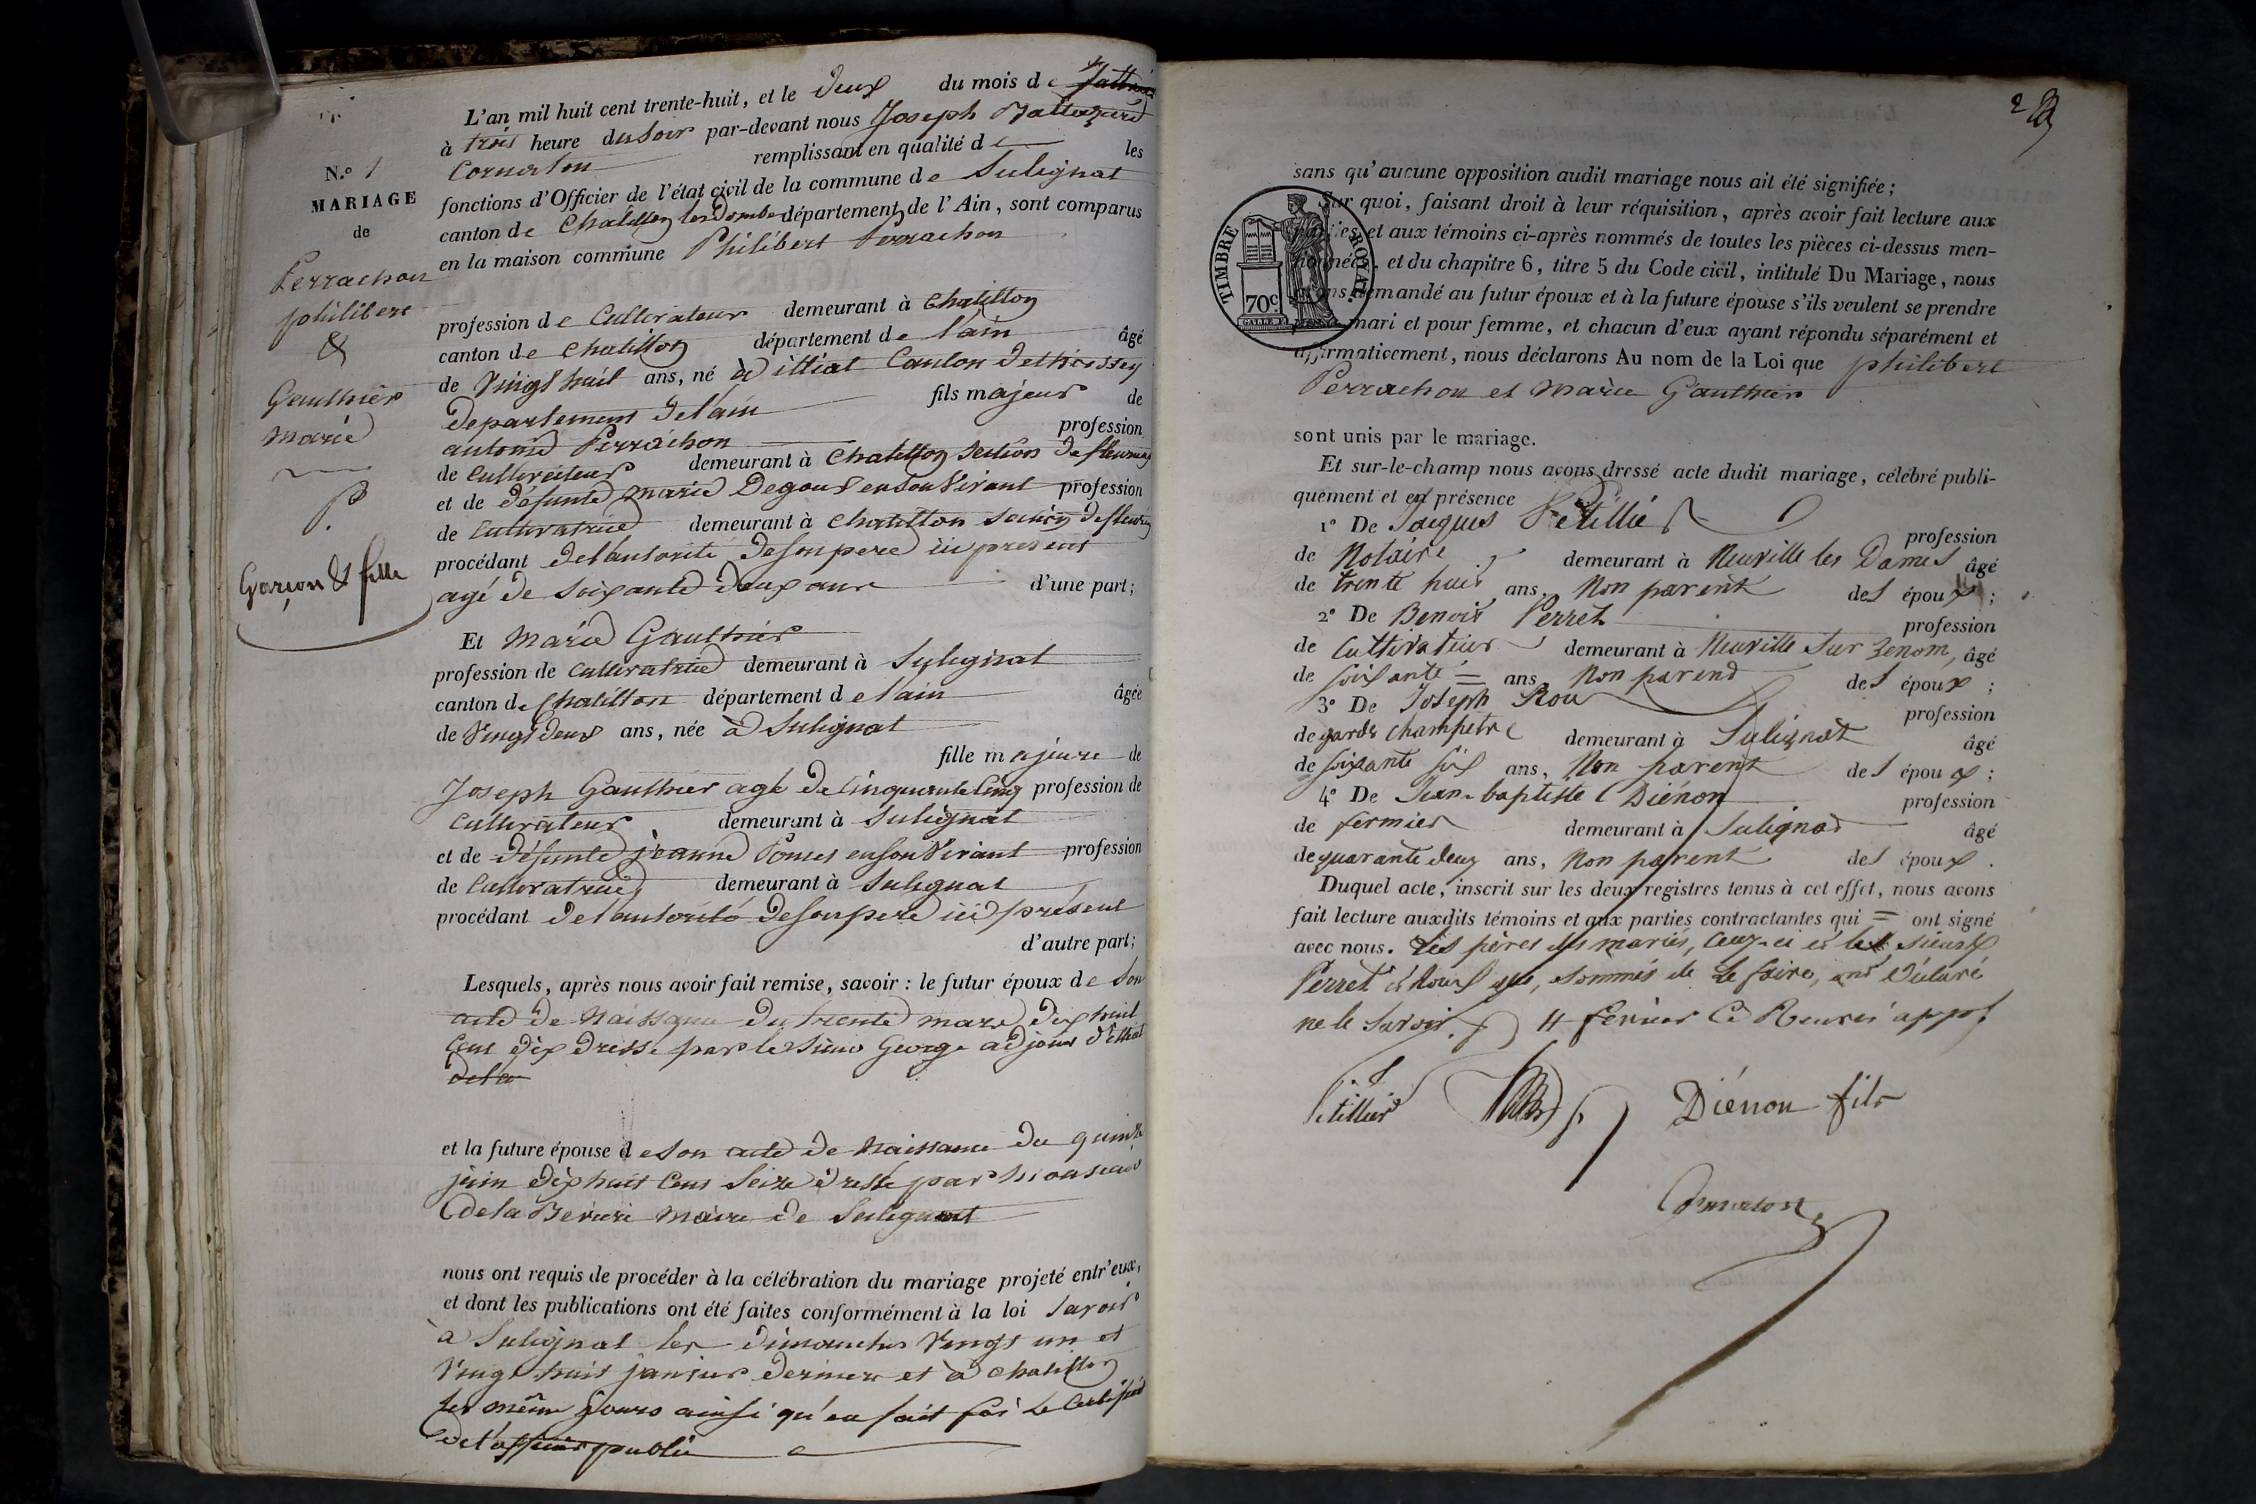 L'an mil huit cent trente-huit, et le deux du mois de
à trois heure du soir par-devant nous Joseph
Cornaton remplissant en qualité de les
fonctions d'Officier de l'état civil de la commune de Sulignat
canton de Chatillon les Dombe département de l'Ain, sont comparus
en la maison commune Philibert Perrachon
profession de Cultivateur demeurant à Chatillon
canton de Chatillon département de l'ain âgé
de Vingt huit ans, né à illiat Canton de thoissey
departement de l'ain fils majeur de
antoine Perrachon profession
de Cultivateur demeurant à Chatillon section de
et de défunte marie Degout en son Vivant profession
de Cultivatrice demeurant à Chatillon section de
procédant de l'autorité de son pere ici present
agé de soixante deux ans d'une part;
N.º 1
MARIAGE
de
Perrachon
philibert
&
Gauthier
marie
Garçon & fille
Et Marie Gauthier
profession de cultivatrice demeurant à Sulignat
canton de Chatillon département de l'ain âgée
de Vingt deux ans, née à Sulignat
fille majeure de
Joseph Gauthier agé de Cinquante Cinq profession de
Cultivateur demeurant à Sulignat
et de défunte jeanne en son Vivant profession
de Cultivatrice demeurant à Sulignat
procédant de l'autorité de son pere ici présent
d'autre part;
Lesquels, après nous avoir fait remise, savoir : le futur époux de son
acte de Naissance du trente mars dix huit
Cent dix dressé par le sieur George adjoint d'illiat
de la
et la future épouse de son acte de Naissance du quinze
juin dix huit Cent Seize dressé par
de la Maire de Sulignat
nous ont requis de procéder à la célébration du mariage projeté entr'eux,
et dont les publications ont été faites conformément à la loi savoir
à Sulignat les dimanches Vingt un et
Vingt huit janvier dernier et à Chatillon
les même jours ainsi qu'en fait foi le Certificat
de l'officier public
sans qu'aucune opposition audit mariage nous ait été signifiée;
Sur quoi, faisant droit à leur réquisition, après avoir fait lecture aux
parties et aux témoins ci-après nommés de toutes les pièces ci-dessus men-
tionnées, et du chapitre 6, titre 5 du Code civil, intitulé Du Mariage, nous
avons demandé au futur époux et à la future épouse s'ils veulent se prendre
pour mari et pour femme, et chacun d'eux ayant répondu séparément et
affirmativement, nous déclarons Au nom de la Loi que philibert
Perrachon et Marie Gauthier
TIMBRE ROYAL
70 c.
sont unis par le mariage.
Et sur-le-champ nous avons dressé acte dudit mariage, célébré publi-
quement et en présence
1º De Jacques Pétillié profession
de Notaire demeurant à Neuville les Dames âgé
de trente huit ans, Non parent des époux ;
2º De Benoit Perret profession
de Cultivateur demeurant à Neuville sur Renom, âgé
de soixante = ans, Non parent des époux ;
3º De Joseph Roux profession
de garde champêtre demeurant à Sulignat âgé
de soixante six ans, Non parent des époux ;
4º De Jean-baptiste Diénon profession
de fermier demeurant à Sulignat âgé
de quarante deux ans, Non parent des époux .
Duquel acte, inscrit sur les deux registres tenus à cet effet, nous avons
fait lecture auxdits témoins et aux parties contractantes qui = ont signé
avec nous. Les pères des mariés, ceux-ci et les sieurs
Perret et Roux que, sommés de le faire, ont déclaré
ne le savoir. février
Diénon fils
Cornaton